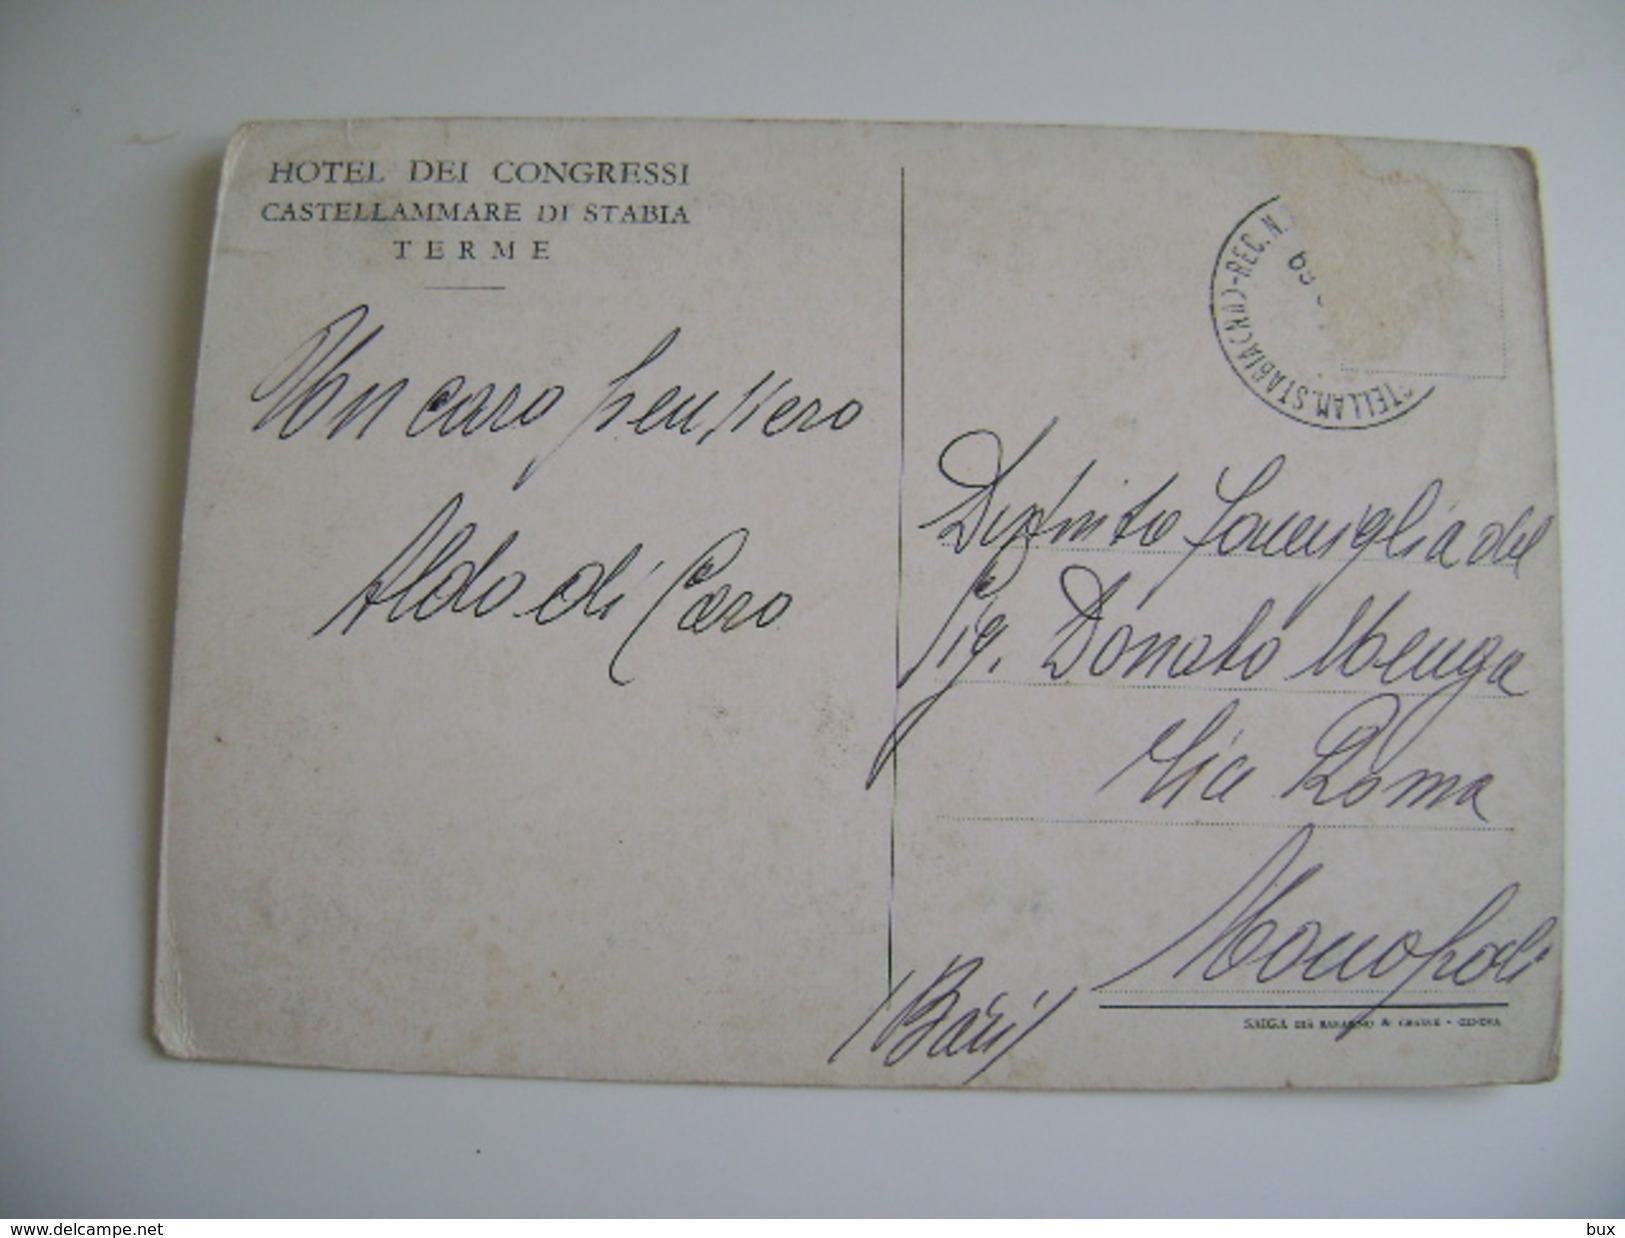 HOTEL DEI CONGRESSI
CASTELLAMMARE DI STABIA
TERME
Un caro pensiero
Aldo di Caro
TELLAM.STABIA(NA)-REC.N.
69
Distinta famiglia del
Sig. Donato Menga
Via Roma
Monopoli
(Bari)
SAIGA GIÀ BARABINO & GRAEVE - GENOVA
www.delcampe.net
bux